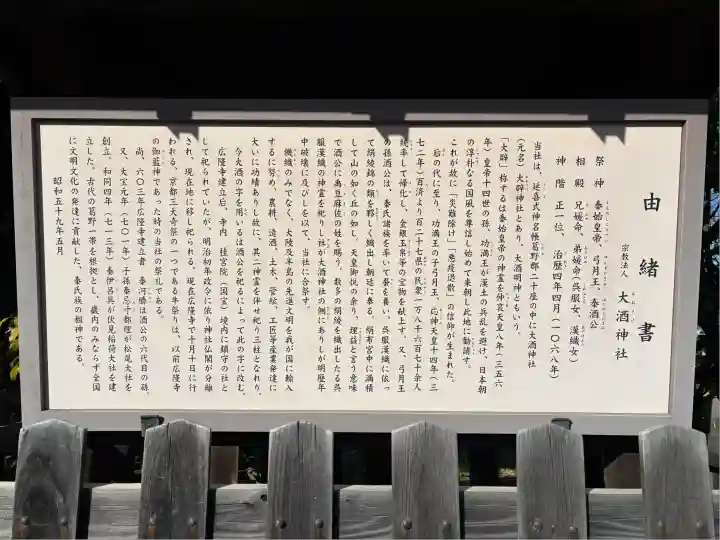 由緒書
宗教法人 大酒神社
祭神 秦始皇帝、弓月王、秦酒公
相殿 兄媛命、弟媛命(呉服女、漢織女)
神階 正一位、治暦四年四月(一〇六八年)
当社は、延喜式神名帳葛野郡二十座の中に大酒神社
(元名)大辟神社とあり、大酒明神ともいう。
「大辟」称するは秦始皇帝の神霊を仲哀天皇八年(三五六
年)皇帝十四世の孫、功満王が漢土の兵乱を避け、日本朝
の淳朴なる国風を尊信し始めて来朝し此地に勧請す。
これが故に「災難除け」「悪疫退散」の信仰が生まれた。
后の代に至り、功満王の子弓月王、応神天皇十四年(三
七二年)百済より百二十七県の民衆一万八千六百七十余人
統率して帰化し、金銀玉帛等の宝物を献上す。又、弓月王
の孫酒公は、秦氏諸族を率いて蚕を養い、呉服漢織に依っ
て絹綾錦の類を夥しく織出し朝廷に奉る。絹布宮中に満積
して山の如く丘の如し、天皇御悦の余り、埋益と言う意味
で酒公に禹豆麻佐の姓を賜う。数多の絹綾を織出したる呉
服漢織の神霊を祀りし社が大酒神社の側にありしが明暦年
中破壊に及びしを以て、当社に合祭す。
機織のみでなく、大陸及半島の先進文明を我が国に輸入
するに努め、農耕、造酒、土木、管絃、工匠等産業発達に
大いに功績ありし故に、其二神霊を伴せ祀り三柱となれり。
今大酒の字を用いるは酒公を祀るによって此の字に改む。
広隆寺建立后、寺内、桂宮院(国宝)境内に鎮守の社と
して祀られていたが、明治初年政令に依り神社仏閣が分離
され、現在地に移し祀られる。現在広隆寺で十月十日に行
われる、京都三大奇祭の一つである牛祭りは、以前広隆寺
の伽藍神であった時の当社の祭礼である。
尚、六〇三年広隆寺建立者 秦河勝は酒公の六代目の孫。
又、大宝元年(七〇一年)子孫秦忌寸都理が松尾大社を
創立、和同四年(七一一年)秦伊呂具が伏見稲荷大社を建
立した。古代の葛野一帯を根拠とし、畿内のみならず全国
に文明文化の発達に貢献した、秦氏族の祖神である。
昭和五十九年五月